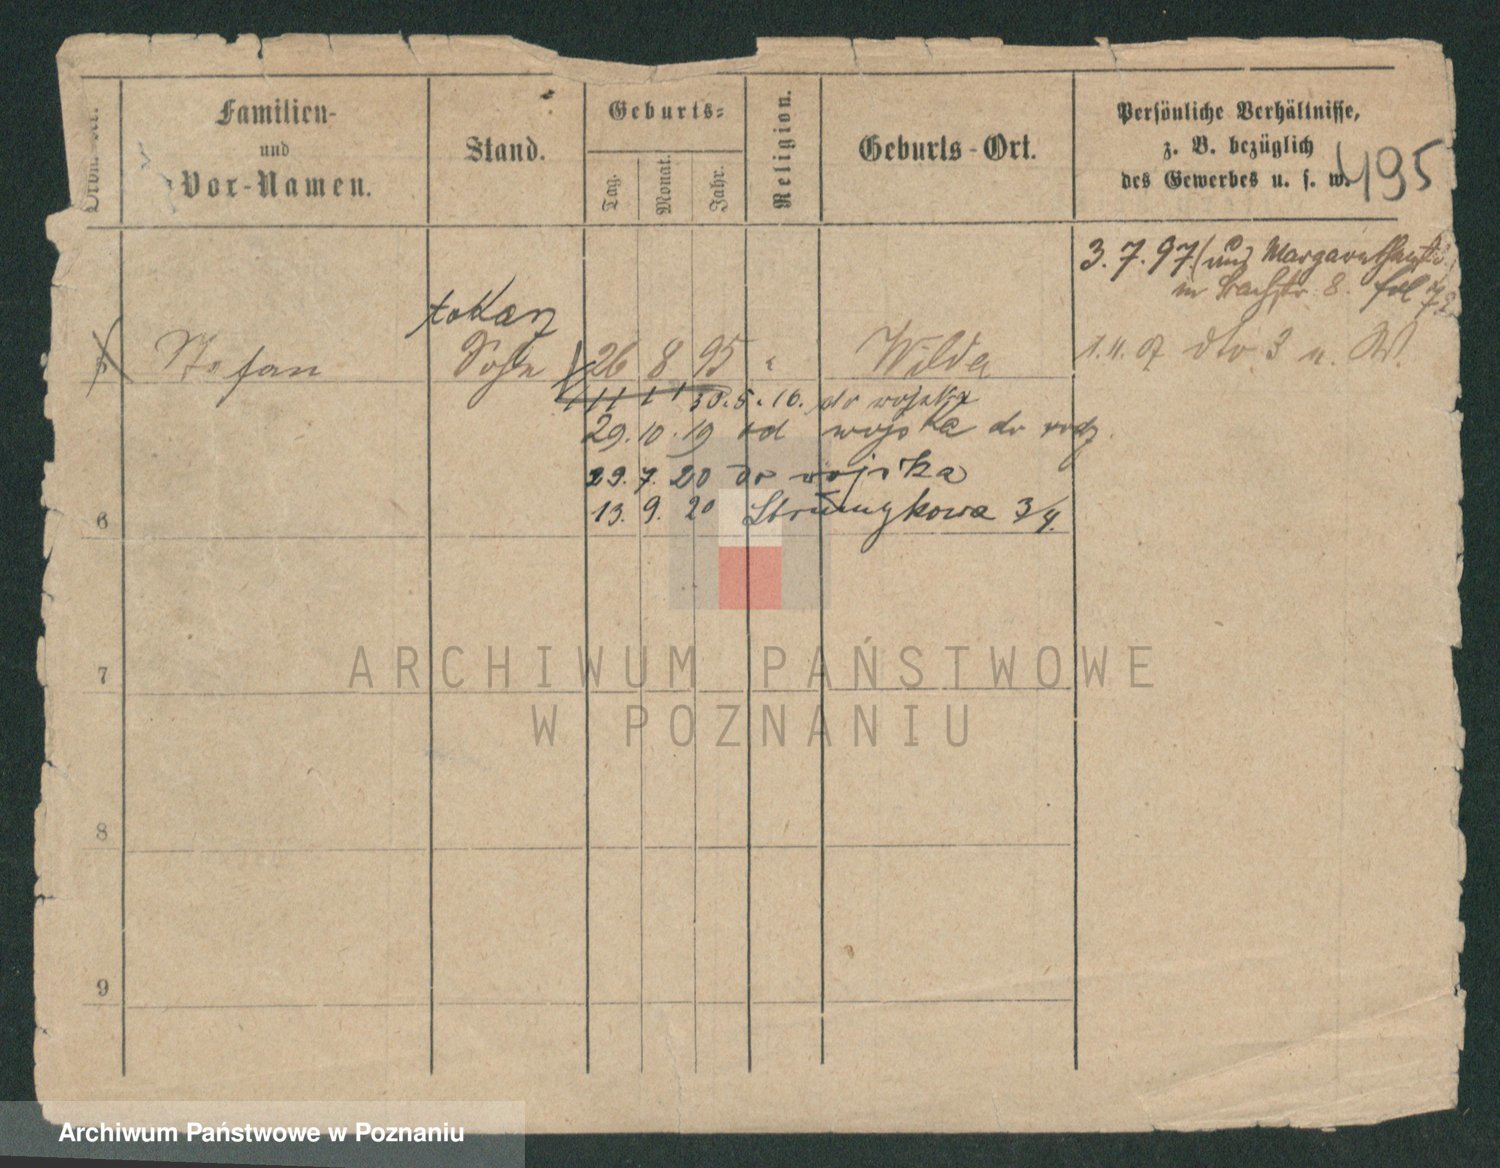 Ordn. Nr.
Familien-
und
Vor-Namen.
Stand.
Geburts-
Tag.
Monat.
Jahr.
Religion.
Geburts-Ort.
Persönliche Verhältnisse,
z. B. bezüglich
des Gewerbes u. s. w.
495
3. 7. 97 (aus
in Bachstr. 8. fol 72
tokarz
Stefan Sohn 26 8 95 " Wilda 1. 11. 07 dto 3 u. W.
30. 5. 16. do wojska
29. 10. 19 od wojska do rodz.
29. 7. 20 do wojska
13. 9. 20 Strumykowa 3/4.
6
7
8
9
ARCHIWUM PAŃSTWOWE
W POZNANIU
Archiwum Państwowe w Poznaniu